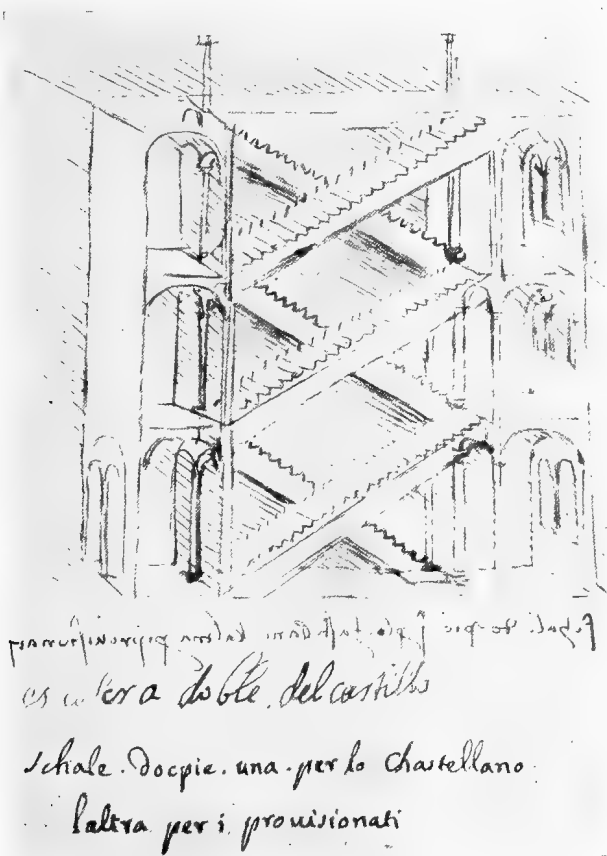 escalera doble del castillo
schale. docpie. una. per lo chastellano
laltra per i prouisionati